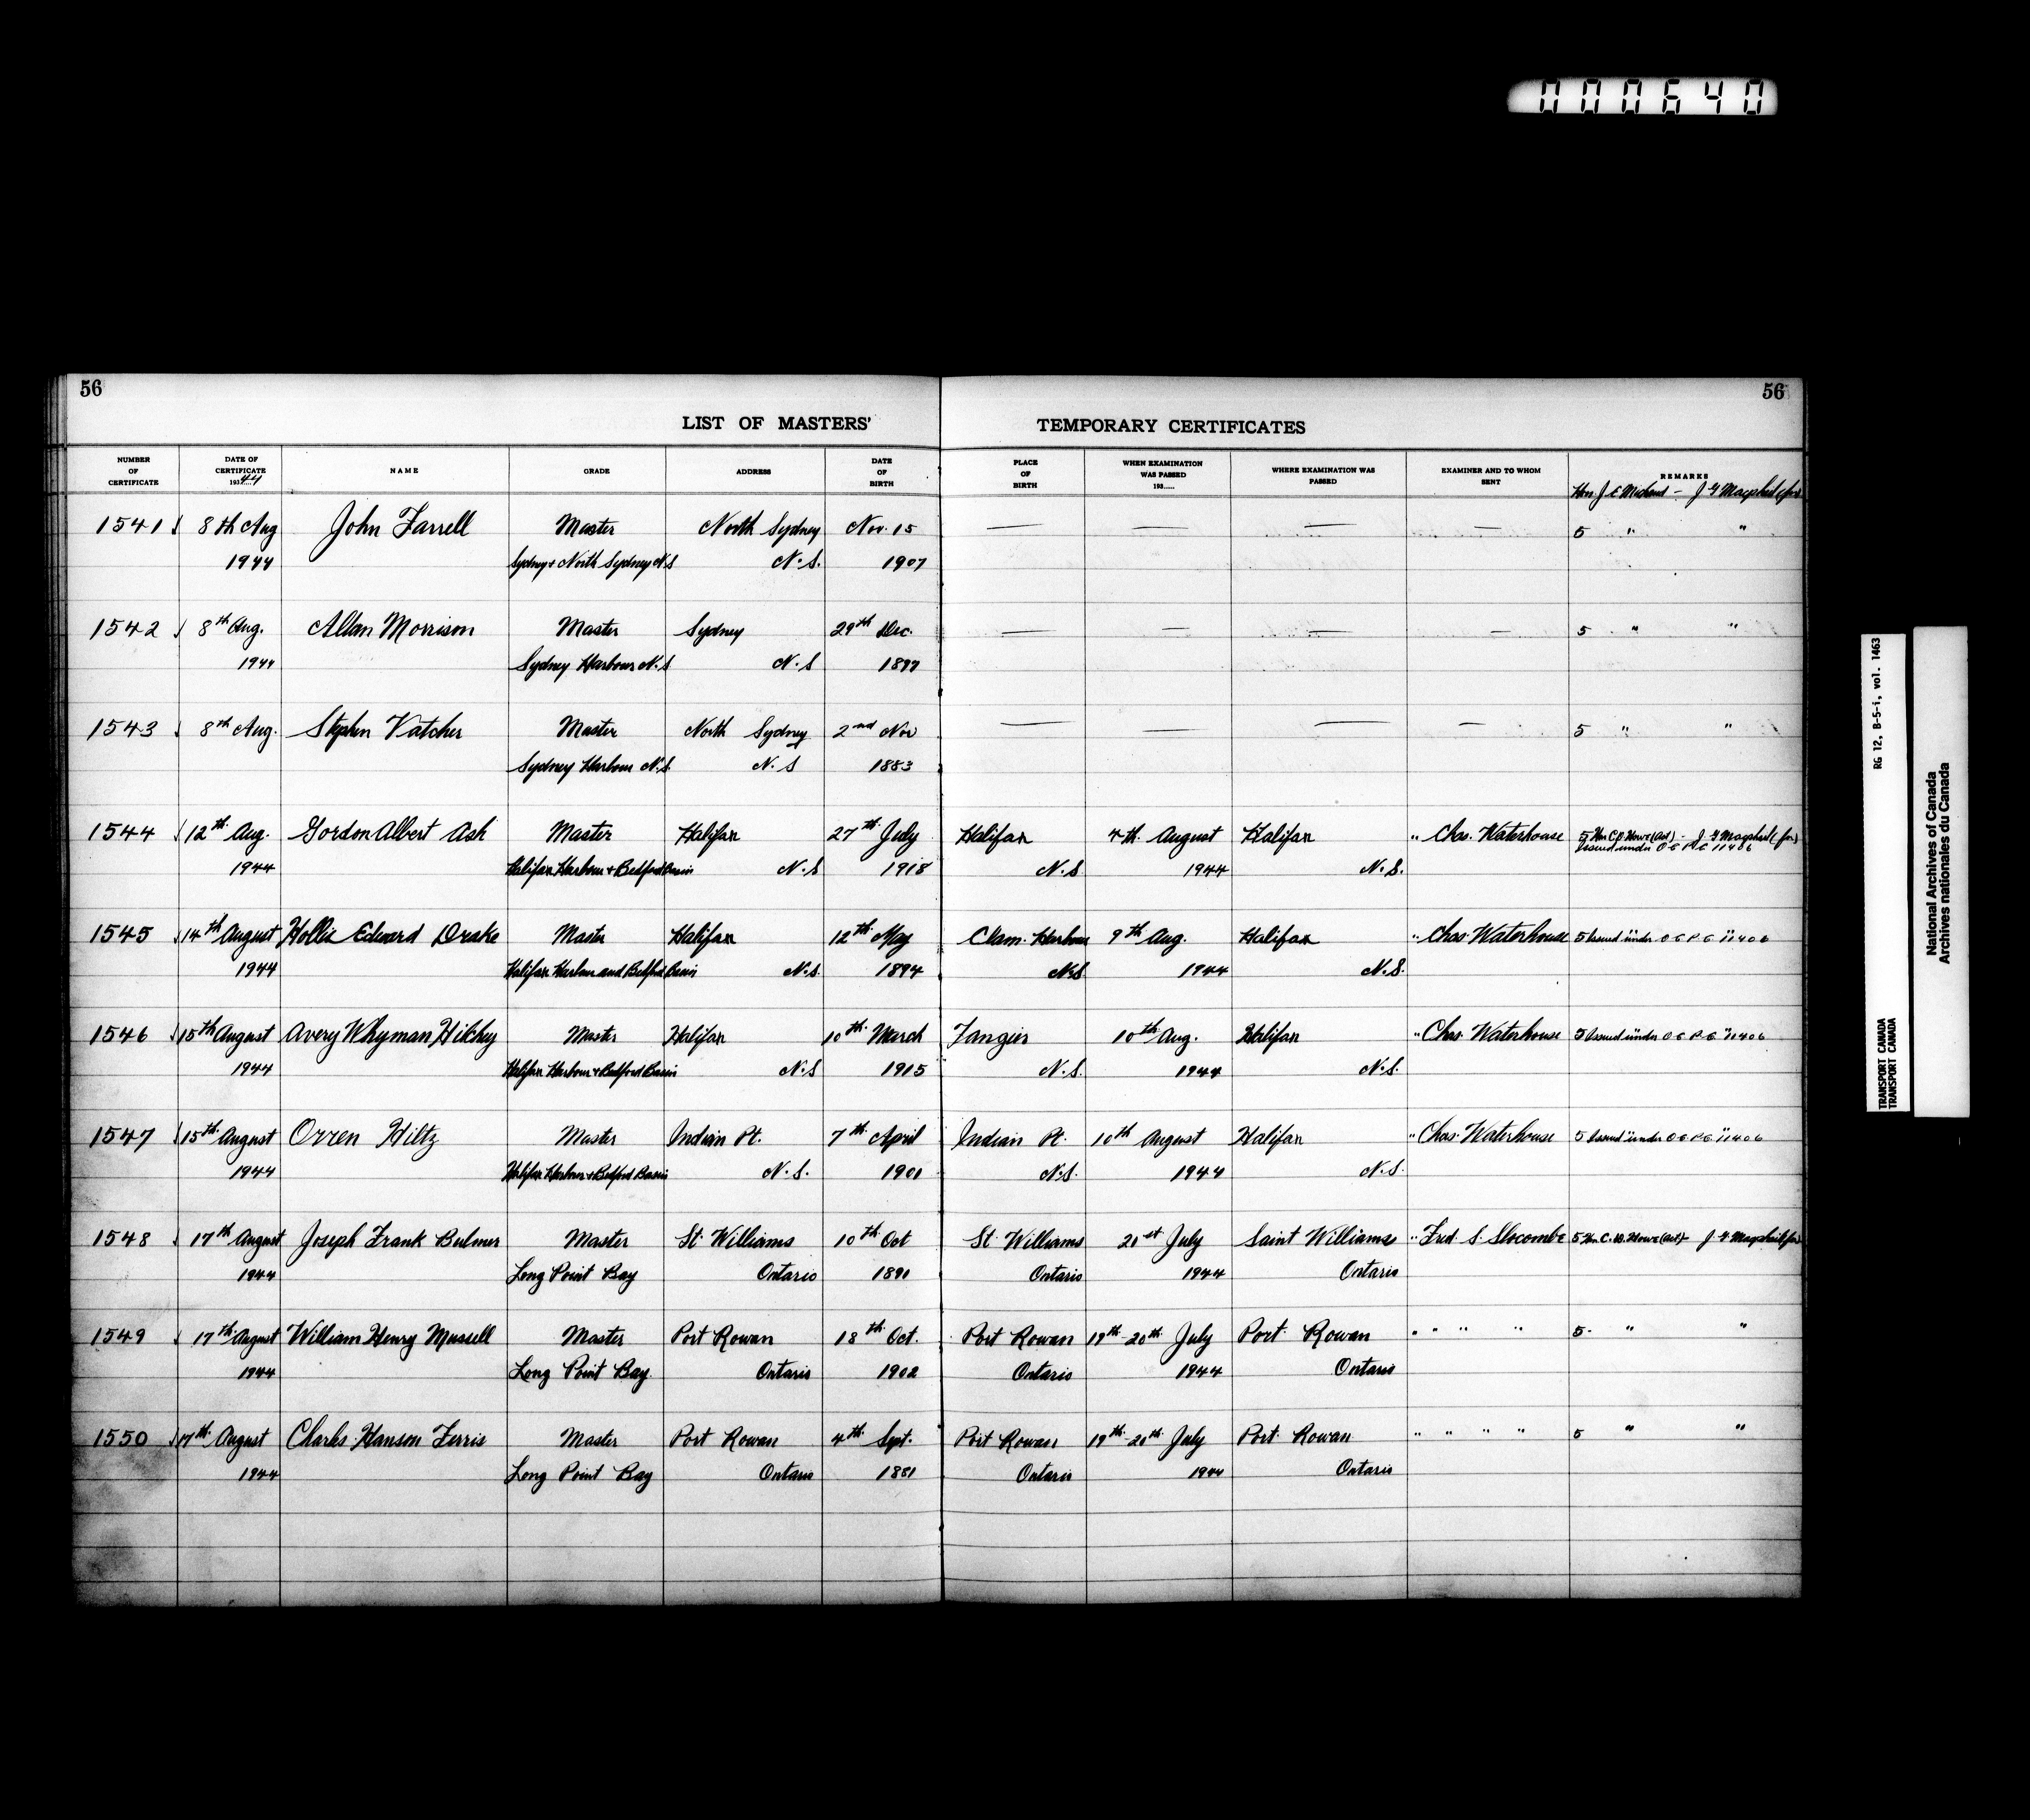 000640
56
56
LIST OF MASTERS'
TEMPORARY CERTIFICATES
NUMBER OF CERTIFICATE
DATE OF CERTIFICATE 1944
NAME
GRADE
ADDRESS
DATE OF BIRTH
PLACE OF BIRTH
WHEN EXAMINATION WAS PASSED 193
WHERE EXAMINATION WAS PASSED
EXAMINER AND TO WHOM SENT
REMARKS
Hon J E Michaud - J G Macphail (for)
1541 8th Aug John Farrell Master North Sydney Nov. 15 — — — — 5 " "
1944 Sydney + North Sydney N.S N.S. 1907
1542 8th Aug. Allan Morrison Master Sydney 29th Dec. — — — — 5 " "
1944 Sydney Harbour N.S N.S
1543 8th Aug. Stephen Vatcher Master North Sydney 2nd Nov — — — — 5 " "
Sydney Harbour N.S. N.S 1883
1544 12th Aug. Gordon Albert Ash Master Halifax 27th July Halifax 4th August Halifax " Chas. Waterhouse 5 Hon C.D. Howe (Act) - J G Macphail (for)
Issued under O C P.C 11406
1944 Halifax Harbour + Bedford Basin N.S 1918 N.S 1944 N.S.
1545 14th August Hollis Edward Drake Master Halifax 12th May Clam. Harbour 9th Aug. Halifax " Chas. Waterhouse 5 Issued under O C P.C 11406
1944 Halifax Harbour and Bedford Basin N.S. 1894 N.S 1944 N.S.
1546 15th August Avery Whyman Hilchey Master Halifax 10th March Tangier 10th Aug. Halifax " Chas. Waterhouse 5 Issued under O C P.C 11406
1944 Halifax Harbour + Bedford Basin N.S 1915 N.S. 1944 N.S.
1547 15th August Orren Hiltz Master Indian Pt. 7th April Indian Pt. 10th August Halifax " Chas. Waterhouse 5 Issued under O C P.C 11406
1944 Halifax Harbour + Bedford Basin N.S. 1901 N.S. 1944 N.S.
1548 17th August Joseph Frank Bulmer Master St. Williams 10th Oct St. Williams 21st July Saint Williams " Fred. S. Slocombe 5 Hon. C. D. Howe (Act) - J G Macphail (for)
1944 Long Point Bay Ontario Ontario 1944 Ontario
1549 17th August William Henry Mussell Master Port Rowan 18th Oct. Port Rowan 19th-20th July Port Rowan " " " " 5 " "
1944 Long Point Bay. Ontario 1902 Ontario 1944 Ontario
1550 17th August Charles Hanson Ferris Master Port Rowan 4th Sept. Port Rowan 19th-20th July Port Rowan " " " " 5 " "
1944 Long Point Bay Ontario 1881 Ontario 1944 Ontario
RG 12, B-5-i, vol. 1463
TRANSPORT CANADA
TRANSPORT CANADA
National Archives of Canada
Archives nationales du Canada